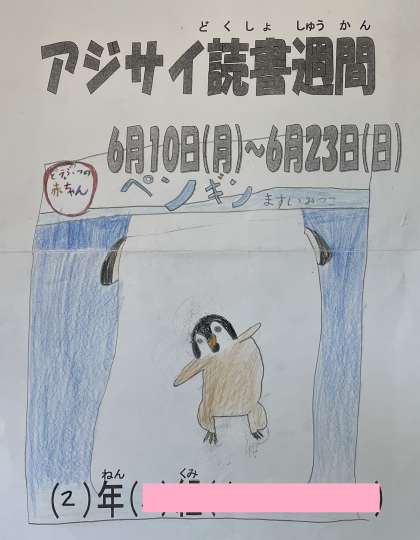 どくしょ しゅうかん
アジサイ読書週間
6月10日(月)~6月23日(日)
どうぶつの
赤ちゃん
ペンギン
ますいみつこ
ねん くみ
(2)年( )組( )